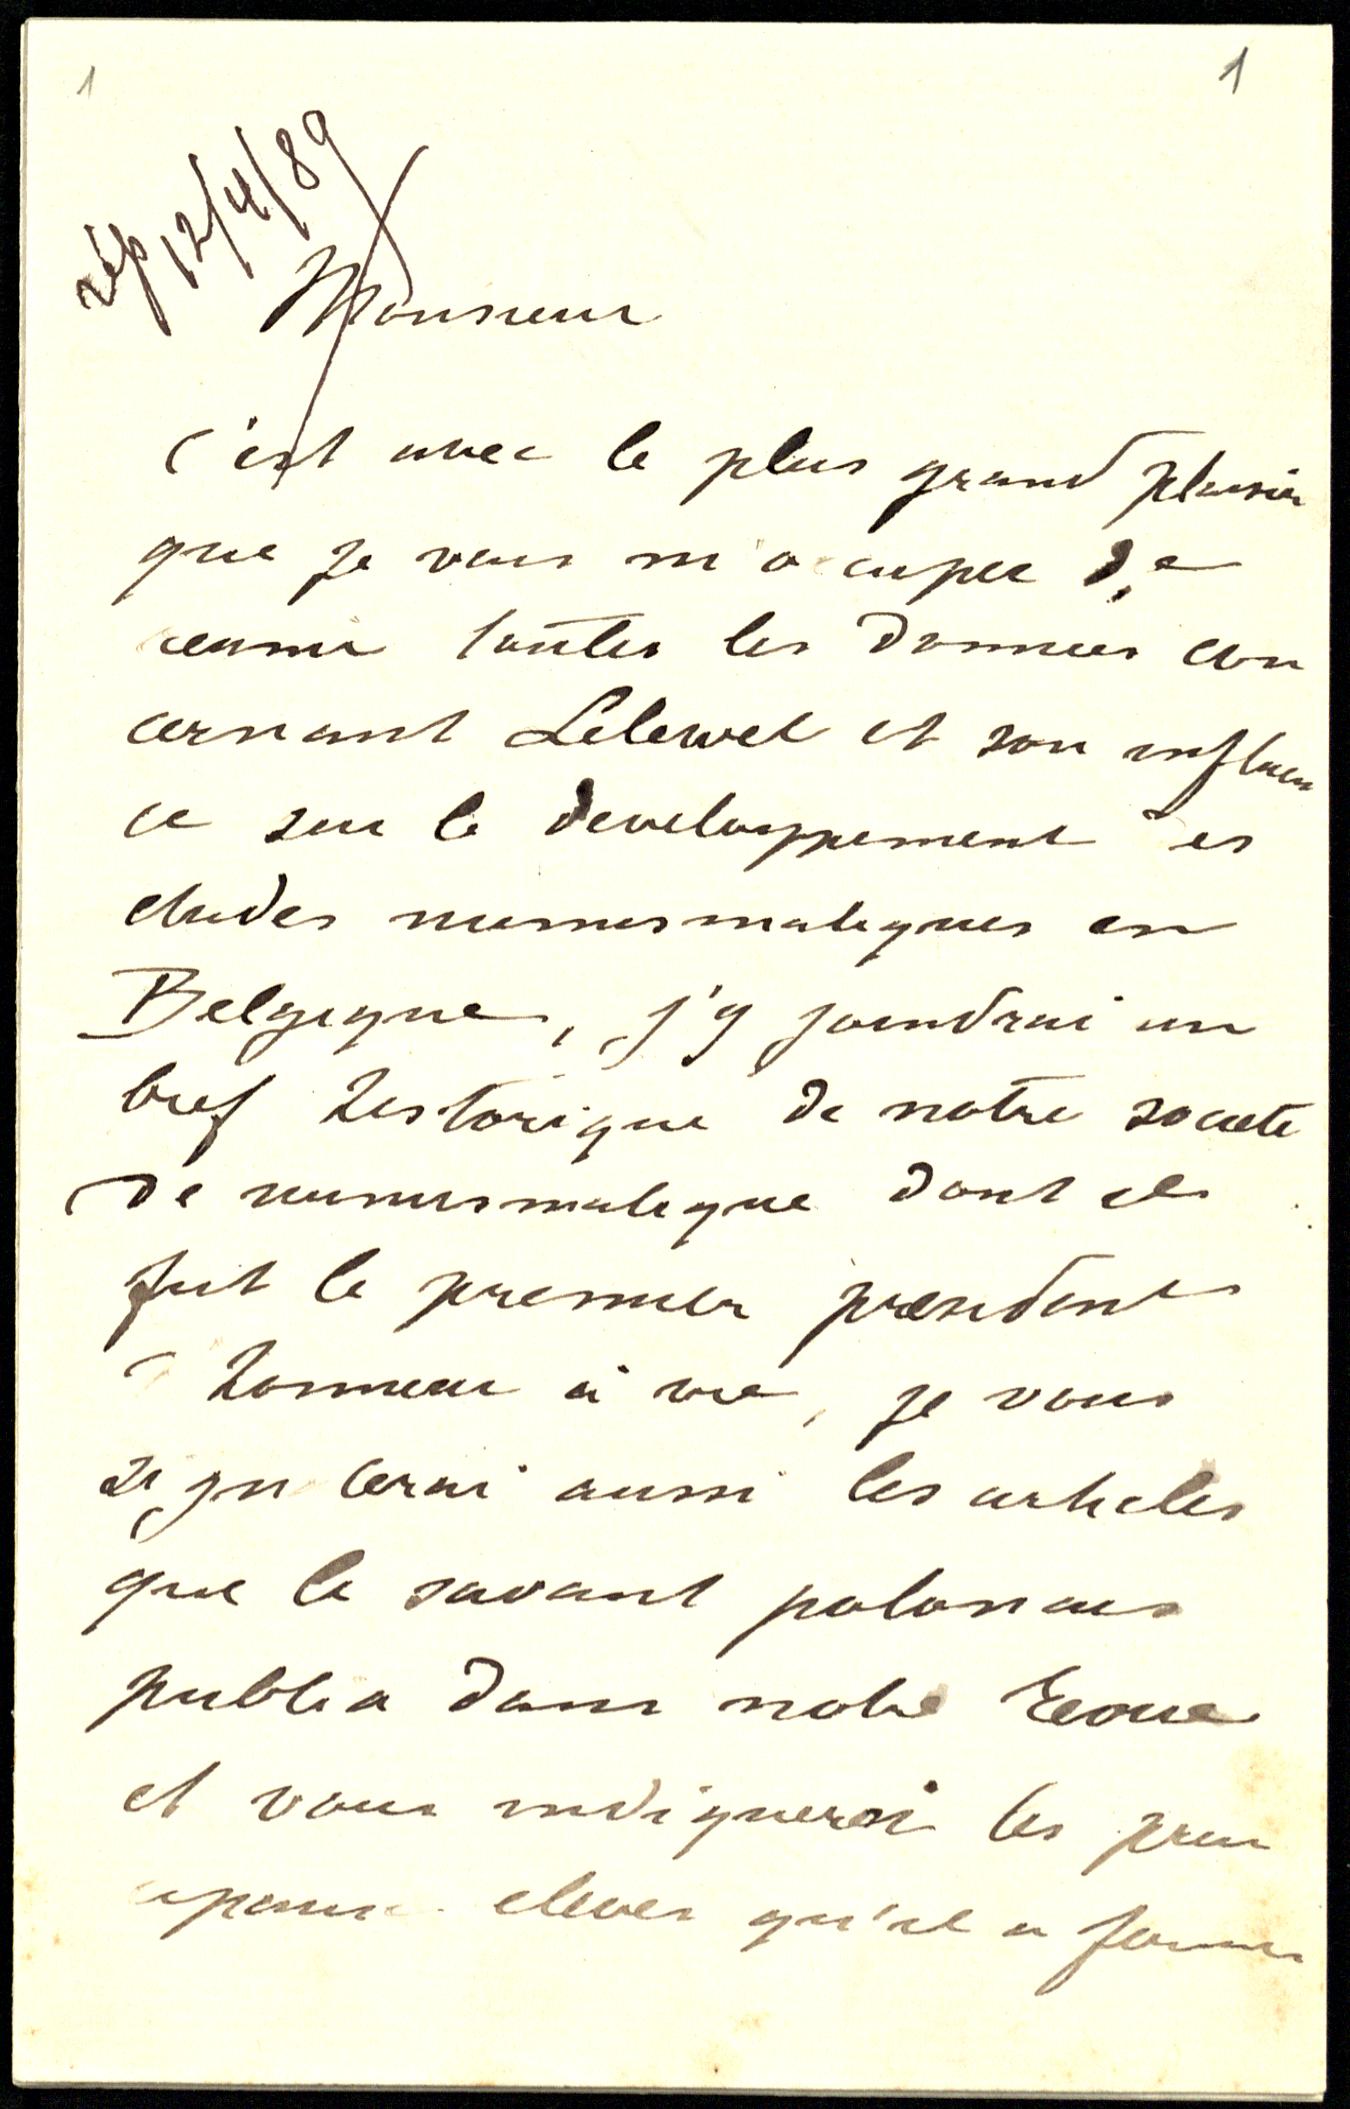 1
1
rép 12/4/89
Monsieur
C'est avec le plus grand plaisir
que je vais m'occuper de
reunir toutes les donnees con
cernant Lelewel et son influen
ce sur le developpement des
etudes numismatiques en
Belgique, j'y joindrai un
bref historique de notre societe
de numismatique dont il
fut le premier president
d'honneur à vie, je vous
signalerai aussi les articles
que le savant polonais
publia dans notre Revue
et vous indiquerai les prin
cipaux eleves qu'il a formes